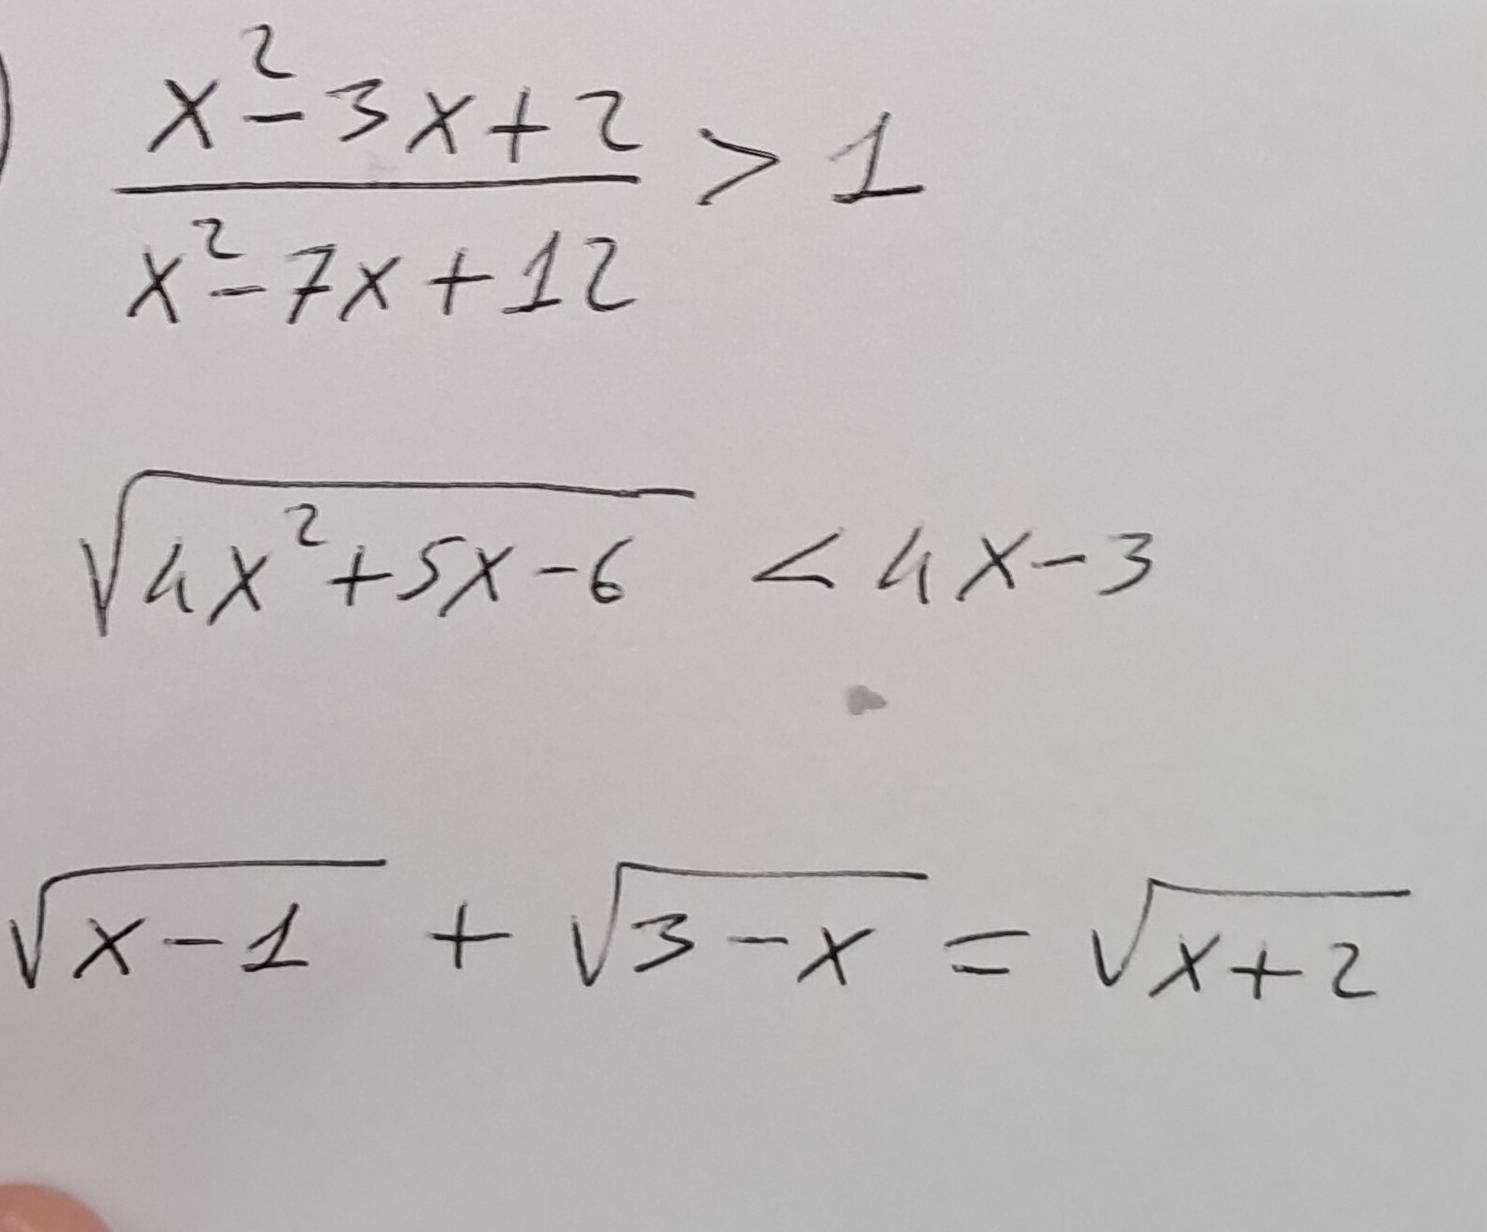 ) x²-3x+2 / x²-7x+12 > 1
√(4x²+5x-6) < 4x-3
√(x-1) + √(3-x) = √(x+2)